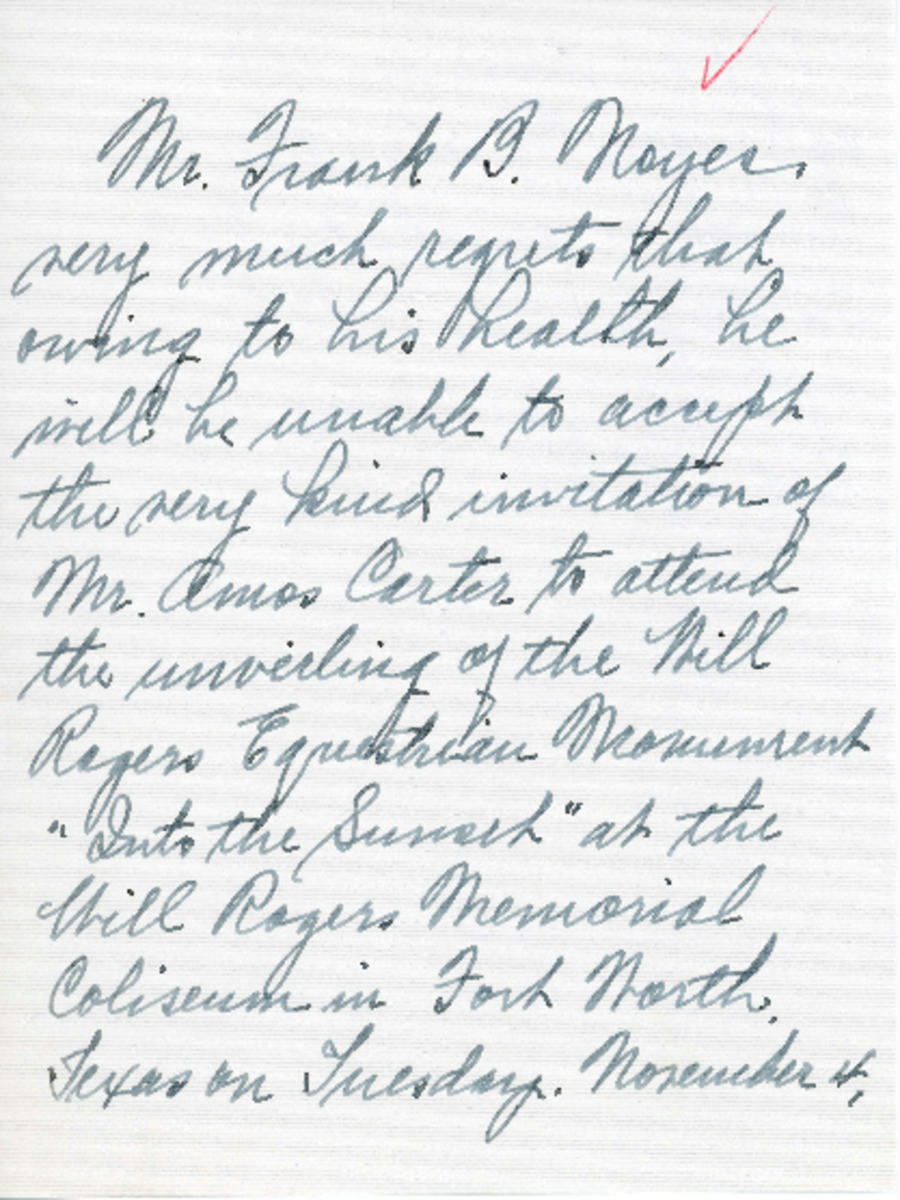 Mr. Frank B. Noyes
very much regrets that
owing to his health, he
will be unable to accept
the very kind invitation of
Mr. Amos Carter to attend
the unveiling of the Will
Rogers Equestrian Monument
"Into the Sunset" at the
Will Rogers Memorial
Coliseum in Fort Worth,
Texas on Tuesday. November 4,